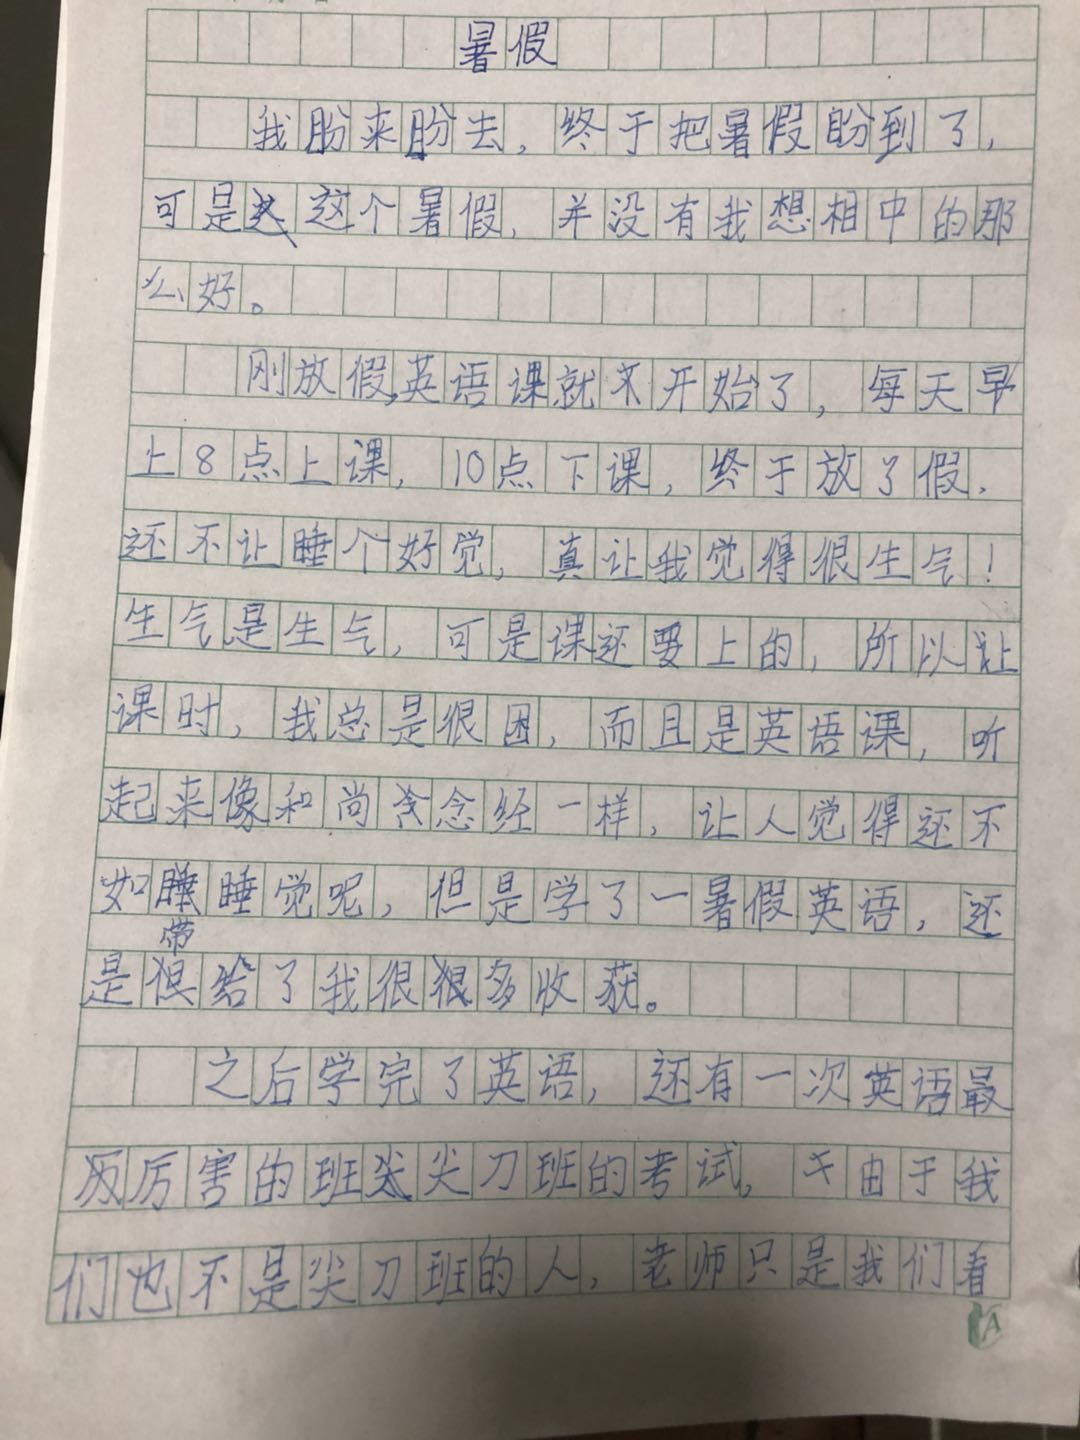 暑假
我盼来盼去，终于把暑假盼到了，
可是这个暑假，并没有我想相中的那
么好。
刚放假，英语课就开始了，每天早
上8点上课，10点下课，终于放了假，
还不让睡个好觉，真让我觉得很生气！
生气是生气，可是课还要上的，所以让
课时，我总是很困，而且是英语课，听
起来像和尚念经一样，让人觉得还不
如睡觉呢，但是学了一暑假英语，还
是带给了我很多收获。
之后学完了英语，还有一次英语最
厉害的班尖刀班的考试，由于我
们也不是尖刀班的人，老师只是我们看
A